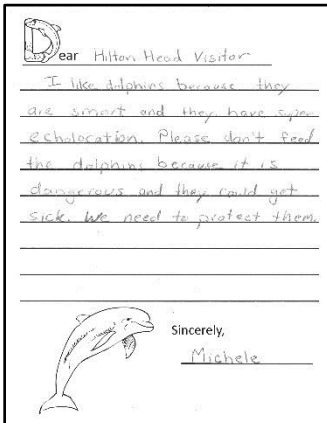 Dear Hilton Head Visitor
I like dolphins because they
are smart and they have super
echolocation. Please don't feed
the dolphins because it is
dangerous and they could get
sick. We need to protect them.
Sincerely,
Michele